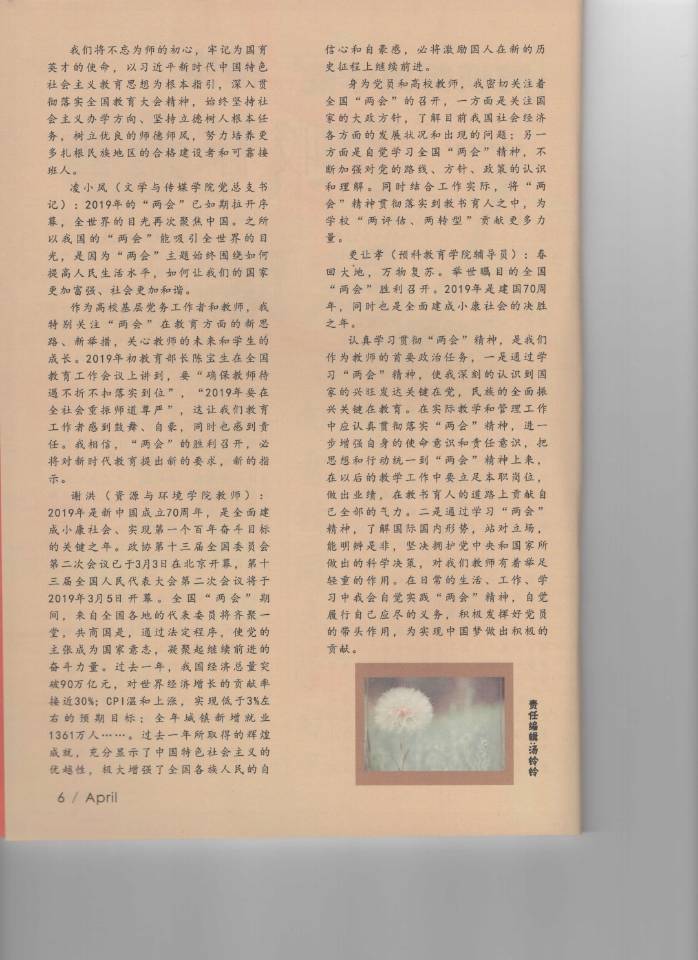 我们将不忘为师的初心，牢记为国育
英才的使命，以习近平新时代中国特色
社会主义教育思想为根本指引，深入贯
彻落实全国教育大会精神，始终坚持社
会主义办学方向、坚持立德树人根本任
务，树立优良的师德师风，努力培养更
多扎根民族地区的合格建设者和可靠接
班人。
凌小凤（文学与传媒学院党总支书
记）：2019年的“两会”已如期拉开序
幕，全世界的目光再次聚焦中国。之所
以我国的“两会”能吸引全世界的目
光，是因为“两会”主题始终围绕如何
提高人民生活水平，如何让我们的国家
更加富强、社会更加和谐。
作为高校基层党务工作者和教师，我
特别关注“两会”在教育方面的新思
路、新举措，关心教师的未来和学生的
成长。2019年初教育部长陈宝生在全国
教育工作会议上讲到，要“确保教师待
遇不折不扣落实到位”，“2019年要在
全社会重振师道尊严”，这让我们教育
工作者感到鼓舞、自豪，同时也感到责
任。我相信，“两会”的胜利召开，必
将对新时代教育提出新的要求，新的指
示。
谢洪（资源与环境学院教师）：
2019年是新中国成立70周年，是全面建
成小康社会、实现第一个百年奋斗目标
的关键之年。政协第十三届全国委员会
第二次会议已于3月3日在北京开幕，第十
三届全国人民代表大会第二次会议将于
2019年3月5日开幕。全国“两会”期
间，来自全国各地的代表委员将齐聚一
堂，共商国是，通过法定程序，使党的
主张成为国家意志，凝聚起继续前进的
奋斗力量。过去一年，我国经济总量突
破90万亿元，对世界经济增长的贡献率
接近30%；CPI温和上涨，实现低于3%左
右的预期目标；全年城镇新增就业
1361万人……。过去一年所取得的辉煌
成就，充分显示了中国特色社会主义的
优越性，极大增强了全国各族人民的自
信心和自豪感，必将激励国人在新的历
史征程上继续前进。
身为党员和高校教师，我密切关注着
全国“两会”的召开，一方面是关注国
家的大政方针，了解目前我国社会经济
各方面的发展状况和出现的问题；另一
方面是自觉学习全国“两会”精神，不
断加强对党的路线、方针、政策的认识
和理解。同时结合工作实际，将“两
会”精神贯彻落实到教书育人之中，为
学校“两评估、两转型”贡献更多力
量。
更让孝（预科教育学院辅导员）：春
回大地，万物复苏。举世瞩目的全国
“两会”胜利召开。2019年是建国70周
年，同时也是全面建成小康社会的决胜
之年。
认真学习贯彻“两会”精神，是我们
作为教师的首要政治任务，一是通过学
习“两会”精神，使我深刻的认识到国
家的兴旺发达关键在党，民族的全面振
兴关键在教育。在实际教学和管理工作
中应认真贯彻落实“两会”精神，进一
步增强自身的使命意识和责任意识，把
思想和行动统一到“两会”精神上来，
在以后的教学工作中要立足本职岗位，
做出业绩，在教书育人的道路上贡献自
己全部的气力。二是通过学习“两会”
精神，了解国际国内形势，站对立场，
能明辨是非，坚决拥护党中央和国家所
做出的科学决策，对我们教师有着举足
轻重的作用。在日常的生活、工作、学
习中我会自觉实践“两会”精神，自觉
履行自己应尽的义务，积极发挥好党员
的带头作用，为实现中国梦做出积极的
贡献。
责任编辑：汤铃铃
6 / April